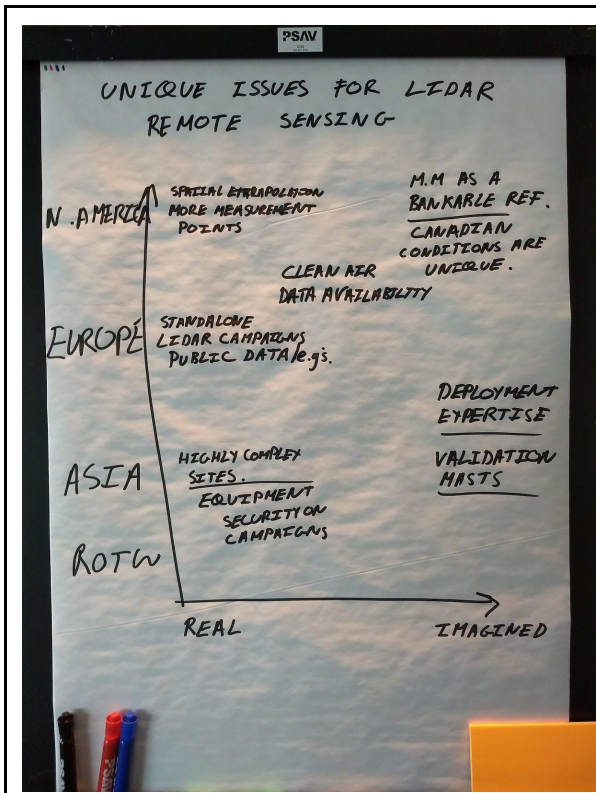 PSAV
UNIQUE ISSUES FOR LIDAR
REMOTE SENSING
N. AMERICA
SPATIAL EXTRAPOLATION
MORE MEASUREMENT
POINTS
M.M AS A
BANKABLE REF.
CANADIAN
CONDITIONS ARE
UNIQUE.
CLEAN AIR
DATA AVAILABILITY
EUROPE
STANDALONE
LIDAR CAMPAIGNS
PUBLIC DATA/e.g's.
DEPLOYMENT
EXPERTISE
ASIA
HIGHLY COMPLEX
SITES.
EQUIPMENT
SECURITY ON
CAMPAIGNS
VALIDATION
MASTS
ROTW
REAL
IMAGINED